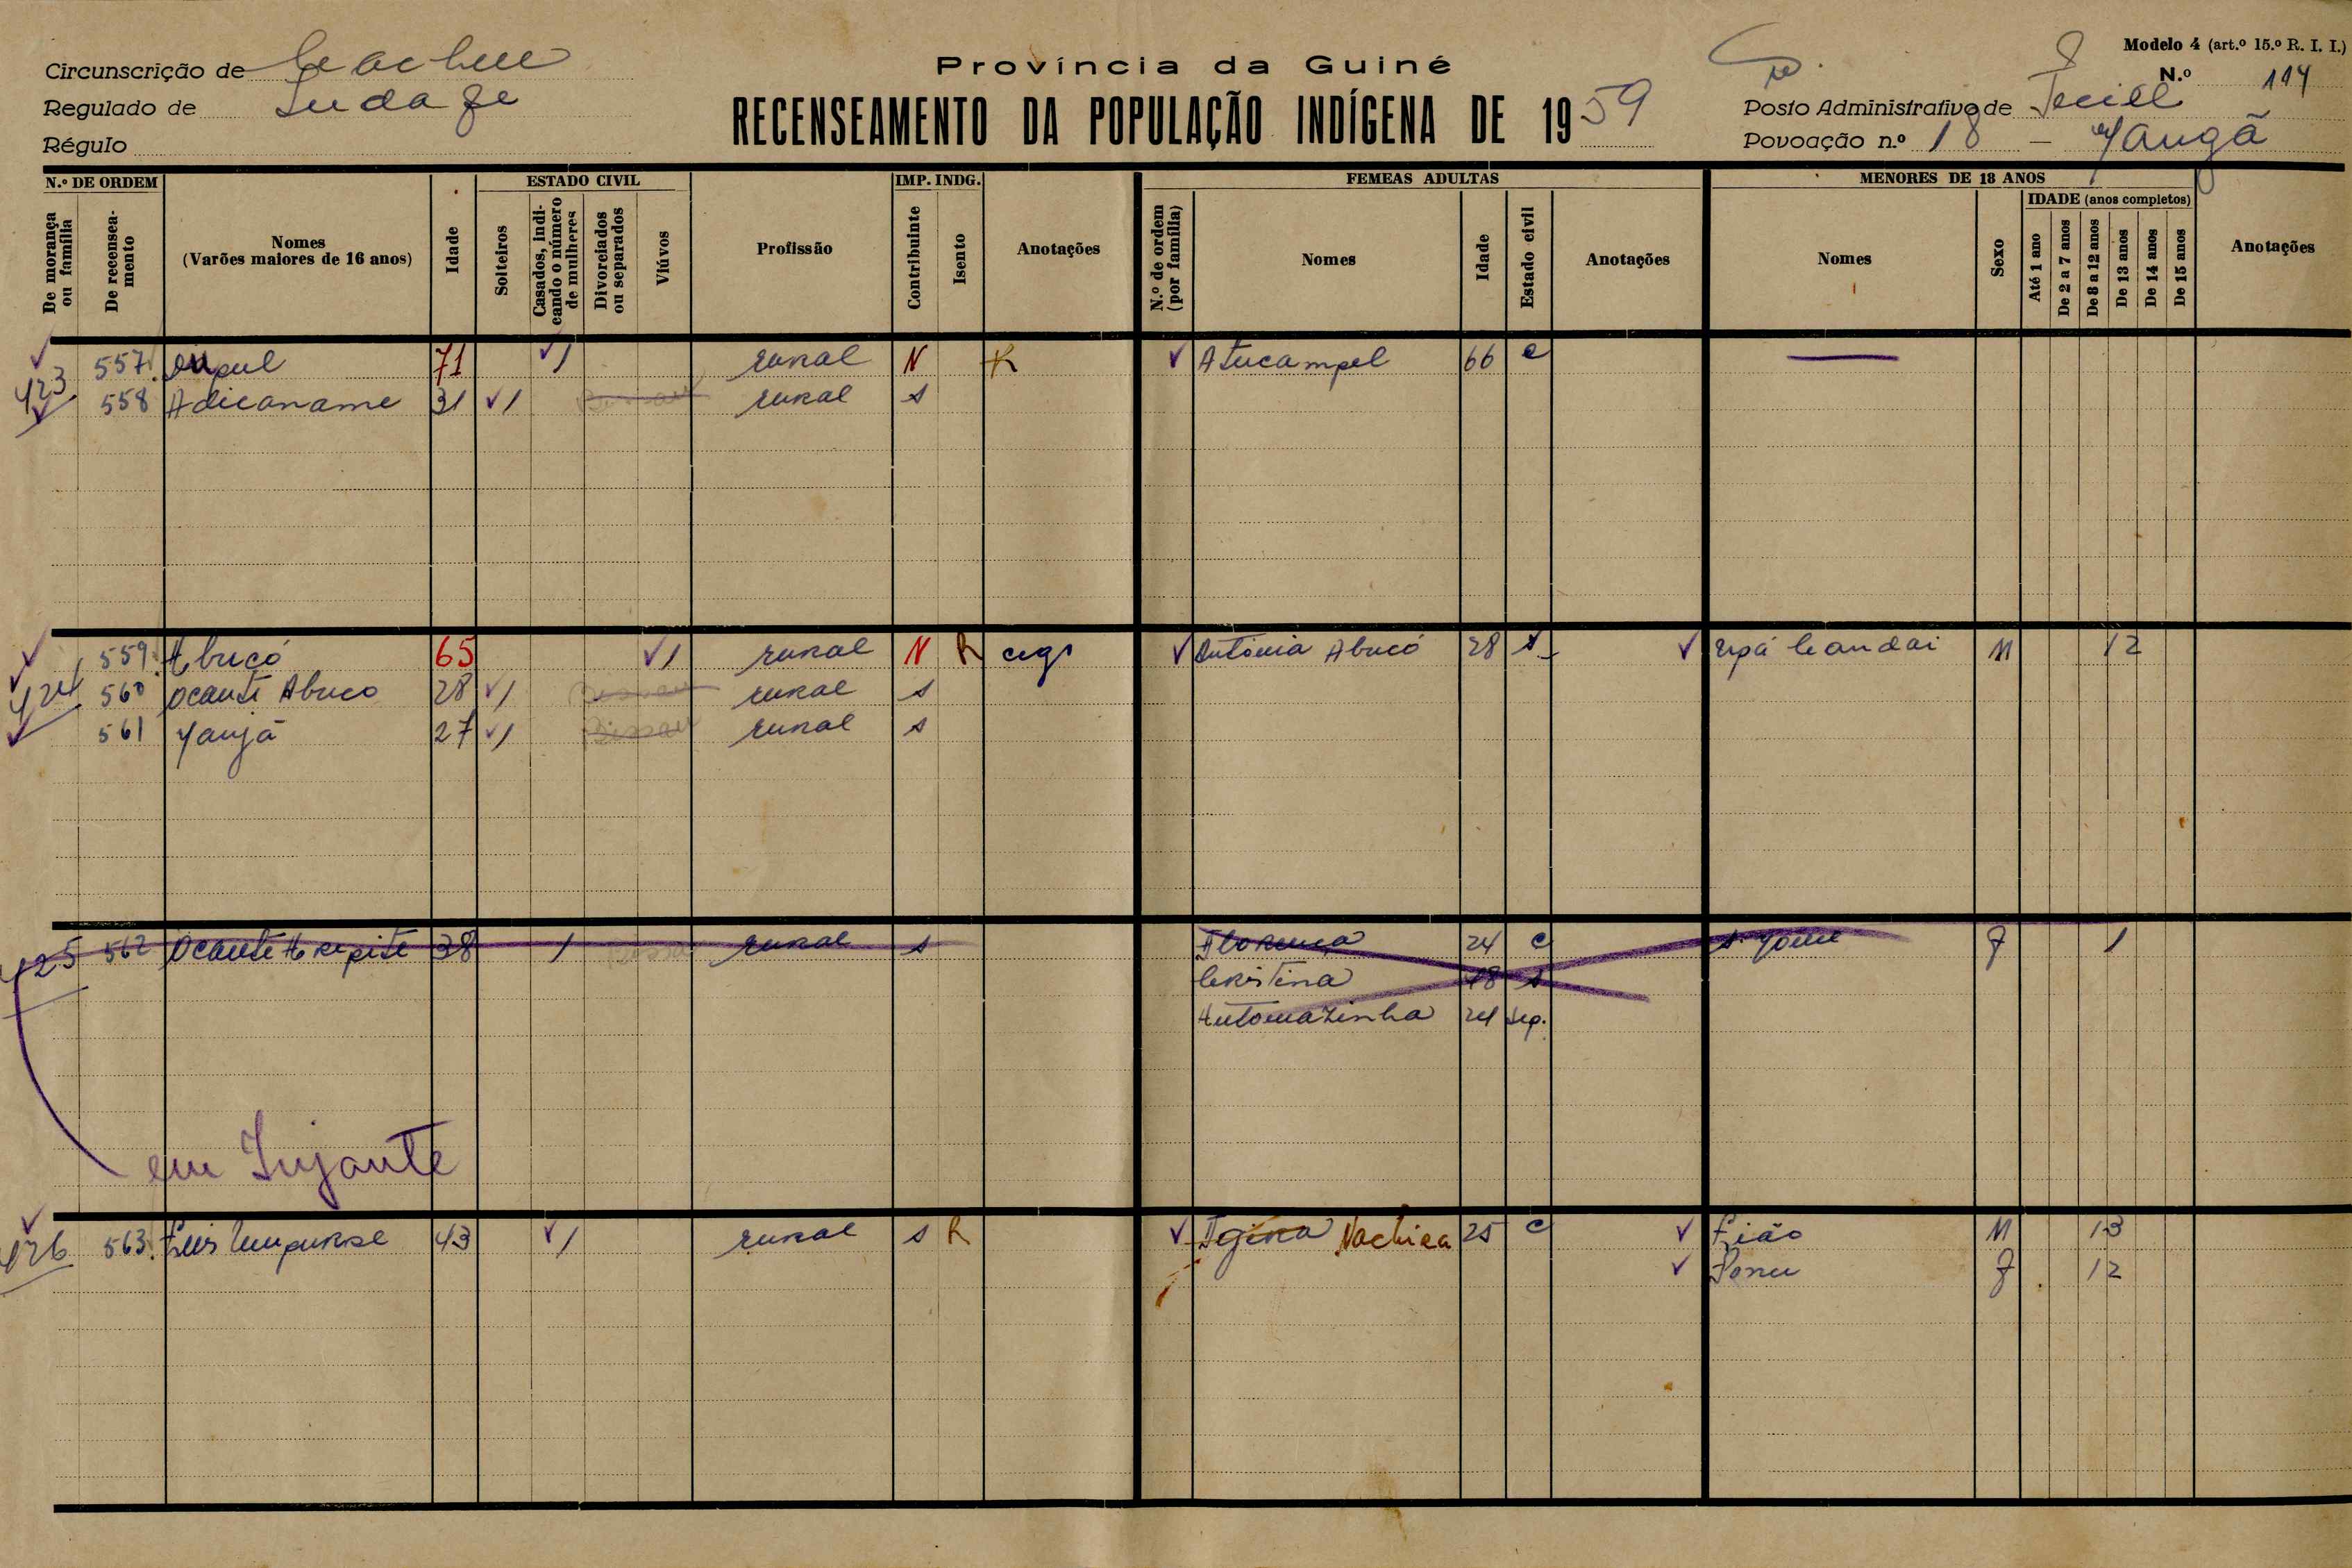 Modelo 4 (art.º 15.º R. I. I.)
Circunscrição de
Província da Guiné
N.º 114
Regulado de
RECENSEAMENTO DA POPULAÇÃO INDÍGENA DE 1959
Posto Administrativo de
Régulo
Povoação n.º 18 – Yangã
N.º DE ORDEM ESTADO CIVIL IMP. INDG. FEMEAS ADULTAS MENORES DE 18 ANOS
De morança ou família De recenseamento Nomes (Varões maiores de 16 anos) Idade Solteiros Casados, indicando o número de mulheres Divorciados ou separados Viúvos Profissão Contribuinte Isento Anotações N.º de ordem (por família) Nomes Idade Estado civil Anotações Nomes Sexo IDADE (anos completos) Até 1 ano De 2 a 7 anos De 8 a 12 anos De 13 anos De 14 anos De 15 anos Anotações
423 557 71 1 rural N R Atucampel 66 c
558 Adicaname 31 1 rural s
424 559 Abucó 65 1 rural N R cego Antónia Abucó 28 s M 12
560 Ocante Abuco 28 1 Bissau rural s
561 Yanjã 27 1 Bissau rural s
425 562 Ocante 38 1 rural s Florença 24 c F 1
Cristina 18 s
Antoniazinha 24 sep.
em Injante
426 563 Luis 43 1 rural s R Nachica 25 c M 13
F 12